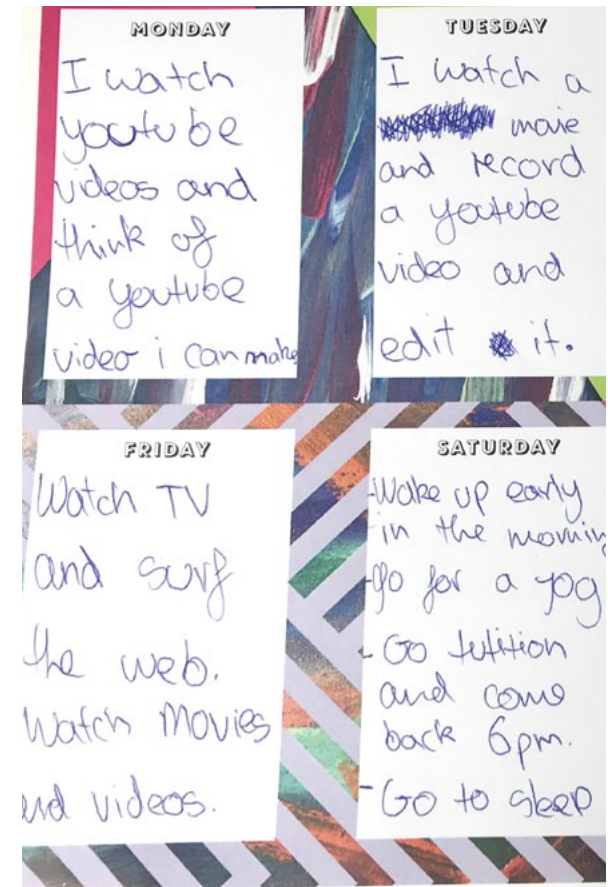 MONDAY
I watch
youtube
videos and
think of
a youtube
video i can make
TUESDAY
I watch a
movie
and record
a youtube
video and
edit it.
FRIDAY
Watch TV
and surf
the web.
Watch Movies
and videos.
SATURDAY
-Wake up early
in the morning
-go for a yog
- Go tutition
and come
back 6pm.
- Go to sleep